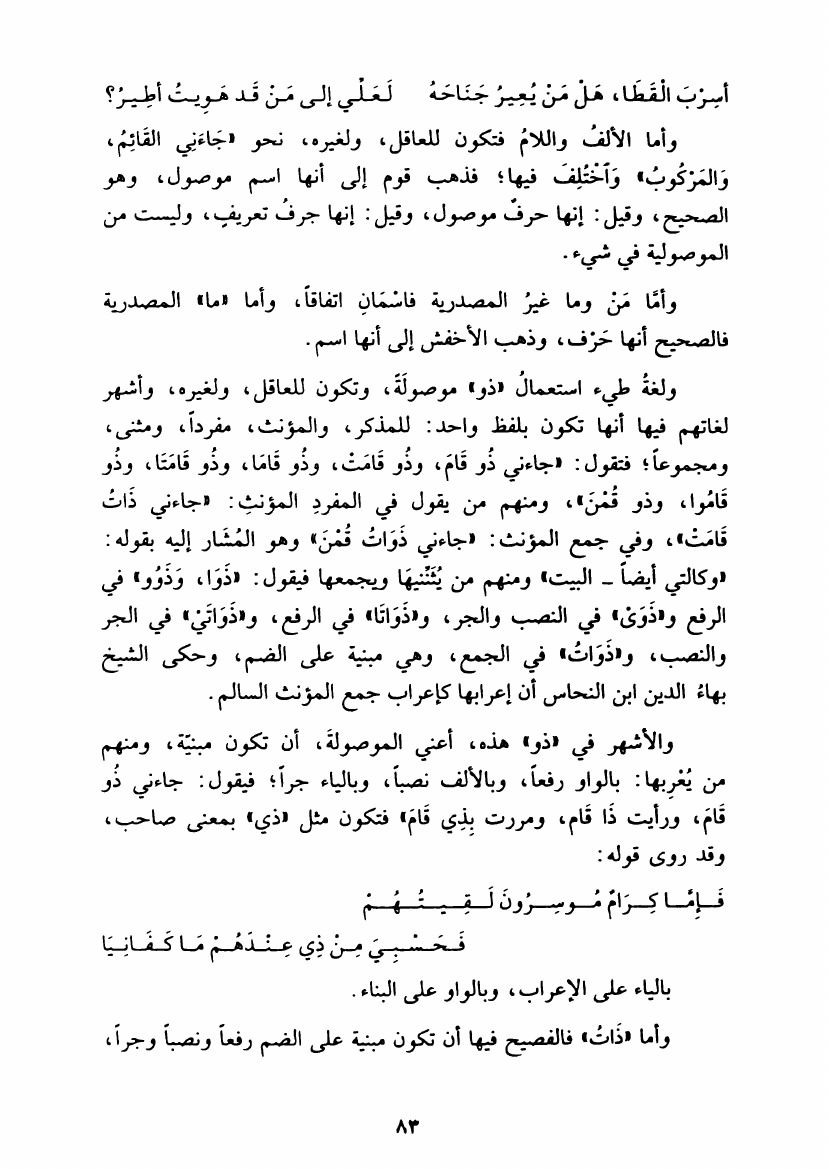 أسِرْبَ الْقَطَا، هَلْ مَنْ يُعِيرُ جَنَاحَهُ لَعَلِّي إلى مَنْ قَد هَوِيتُ أطِيرُ؟
وأما الألفُ واللامُ فتكون للعاقل، ولغيره، نحو «جَاءَنِي القَائِمُ،
وَالمَرْكُوبُ» وَاَخْتُلِفَ فيها؛ فذهب قوم إلى أنها اسم موصول، وهو
الصحيح، وقيل: إنها حرفٌ موصول، وقيل: إنها حرفُ تعريفٍ، وليست من
الموصولية في شيء.
وأمَّا مَنْ وما غيرُ المصدرية فاسْمَانِ اتفاقاً، وأما «ما» المصدرية
فالصحيح أنها حَرْف، وذهب الأخفش إلى أنها اسم.
ولغةُ طيء استعمالُ «ذو» موصولَةً، وتكون للعاقل، ولغيره، وأشهر
لغاتهم فيها أنها تكون بلفظ واحد: للمذكر، والمؤنث، مفرداً، ومثنى،
ومجموعاً؛ فتقول: «جاءني ذُو قَامَ، وذُو قَامَتْ، وذُو قَامَا، وذُو قَامَتَا، وذُو
قَامُوا، وذو قُمْنَ»، ومنهم من يقول في المفردِ المؤنثِ: «جاءني ذَاتُ
قَامَتْ»، وفي جمع المؤنث: «جاءني ذَوَاتُ قُمْنَ» وهو المُشَار إليه بقوله:
«وكالتي أيضاً ـ البيت» ومنهم من يُثَنِّيهَا ويجمعها فيقول: «ذَوَا، وَذَوُو» في
الرفع و«ذَوَىْ» في النصب والجر، و«ذَوَاتَا» في الرفع، و«ذَوَاتَيْ» في الجر
والنصب، و«ذَوَاتُ» في الجمع، وهي مبنية على الضم، وحكى الشيخ
بهاءُ الدين ابن النحاس أن إعرابها كإعراب جمع المؤنث السالم.
والأشهر في «ذو» هذه، أعني الموصولةَ، أن تكون مبنيّة، ومنهم
من يُعْرِبها: بالواو رفعاً، وبالألف نصباً، وبالياء جراً؛ فيقول: جاءني ذُو
قَامَ، ورأيت ذَا قَام، ومررت بِذِي قَامَ» فتكون مثل «ذي» بمعنى صاحب،
وقد روى قوله:
فَإِمَّا كِرَامٌ مُوسِرُونَ لَقِيتُهُمْ
فَحَسْبِيَ مِنْ ذِي عِنْدَهُمْ مَا كَفَانِيَا
بالياء على الإعراب، وبالواو على البناء.
وأما «ذَاتُ» فالفصيح فيها أن تكون مبنية على الضم رفعاً ونصباً وجراً،
٨٣